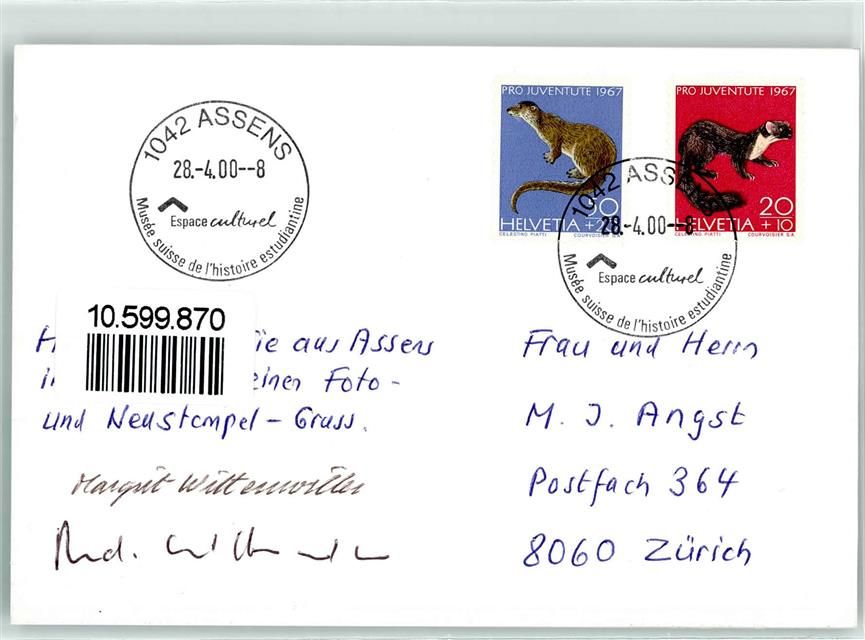 1042 ASSENS
28.-4.00--8
Espace culturel
Musée suisse de l'histoire estudiantine
PRO JUVENTUTE 1967
HELVETIA
CELESTINO PIATTI COURVOISIER S.A.
PRO JUVENTUTE 1967
20
HELVETIA +10
CELESTINO PIATTI COURVOISIER S.A.
1042 ASSENS
28.-4.00--8
Espace culturel
Musée suisse de l'histoire estudiantine
10.599.870
aus Assens
Foto-
und Neustempel-Gruss.
Margrit Wittenwiller
Frau und Herrn
M. J. Angst
Postfach 364
8060 Zürich